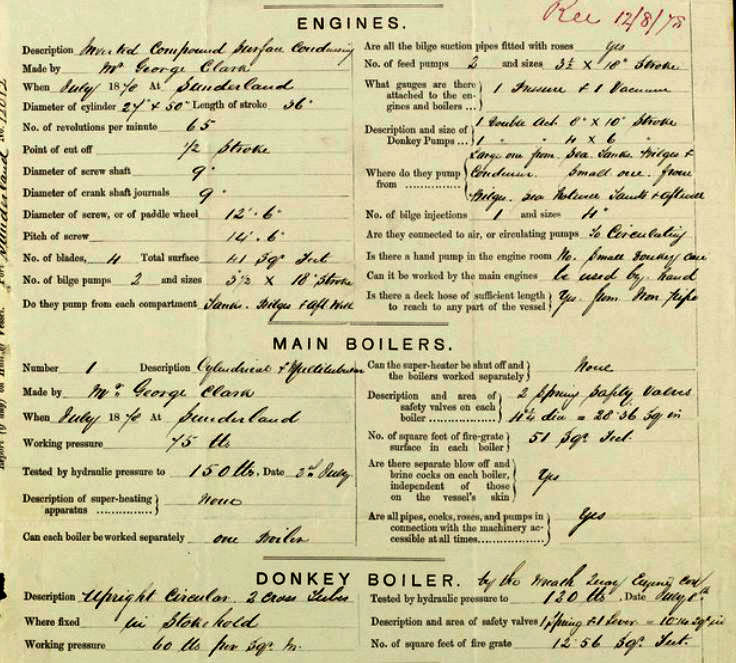 Rec 12/8/78
ENGINES.
Description Inverted Compound Surface Condensing
Made by Mr George Clark
When July 1878 At Sunderland
Diameter of cylinder 27" + 50" Length of stroke 36"
No. of revolutions per minute 65
Point of cut off 1/2 Stroke
Diameter of screw shaft 9"
Diameter of crank shaft journals 9"
Diameter of screw, or of paddle wheel 12'. 6"
Pitch of screw 14'. 6"
No. of blades, 4 Total surface 41 Sqr Feet
No. of bilge pumps 2 and sizes 3 1/2 × 18" Stroke
Do they pump from each compartment Tanks. Bilges + Aft Well
Are all the bilge suction pipes fitted with roses Yes
No. of feed pumps 2 and sizes 3 1/2 × 18" Stroke
What gauges are there attached to the engines and boilers ... 1 Pressure + 1 Vacuum
Description and size of Donkey Pumps ... 1 Double Act. × 10" Stroke
1 " " 4 × 6 "
Where do they pump from Large one from Sea Tanks Bilges +
Condenser. Small one. from
Bilges. Sea Tanks + aft well
No. of bilge injections 1 and sizes 4"
Are they connected to air, or circulating pumps To Circulating
Is there a hand pump in the engine room No. Small Donkey can
Can it be worked by the main engines be used by hand
Is there a deck hose of sufficient length to reach to any part of the vessel Yes. from
MAIN BOILERS.
Number 1 Description Cylindrical + Multitubular
Made by Mr. George Clark
When July 1878 At Sunderland
Working pressure 75 lbs
Tested by hydraulic pressure to 150 lbs. Date 2nd July
Description of super-heating apparatus None
Can each boiler be worked separately one Boiler
Can the super-heater be shut off and the boilers worked separately None
Description and area of safety valves on each boiler 2 Spring Safety Valves
4 1/4 dia = 28.36 Sq in
No. of square feet of fire-grate surface in each boiler 51 Sqr Feet.
Are there separate blow off and brine cocks on each boiler, independent of those on the vessel's skin Yes
Are all pipes, cocks, roses, and pumps in connection with the machinery accessible at all times Yes
DONKEY BOILER. by the Wreath Quay Engine Coy
Description Upright Circular. 2 Cross Tubes
Where fixed in Stokehold
Working pressure 60 lbs per Sqr In.
Tested by hydraulic pressure to 120 lbs. Date July 8th
Description and area of safety valves 1 Spring + 1 Lever =
No. of square feet of fire grate 12.56 Sqr Feet.